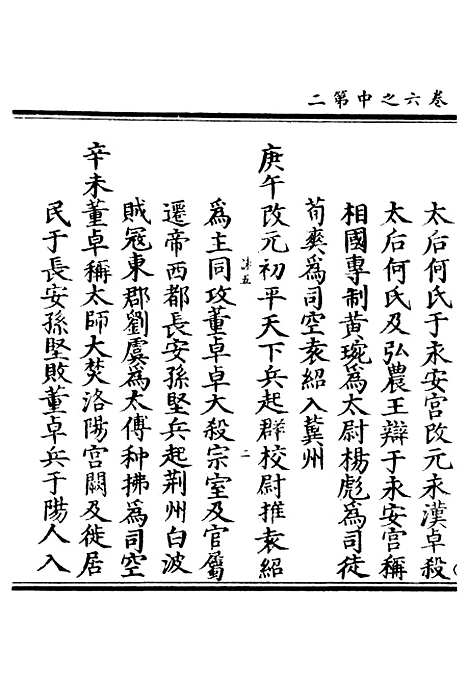 卷六之中第二
太后何氏于永安宮改元永漢卓殺
太后何氏及弘農王辯于永安宮稱
相國專制黃琬爲太尉楊彪爲司徒
荀爽爲司空袁紹入冀州
庚午改元初平天下兵起群校尉推袁紹
爲主同攻董卓卓大殺宗室及官屬
遷帝西都長安孫堅兵起荆州白波
賊寇東郡劉虞爲太傅种拂爲司空
辛未董卓稱太師大焚洛陽宮闕及徙居
民于長安孫堅敗董卓兵于陽人入
二